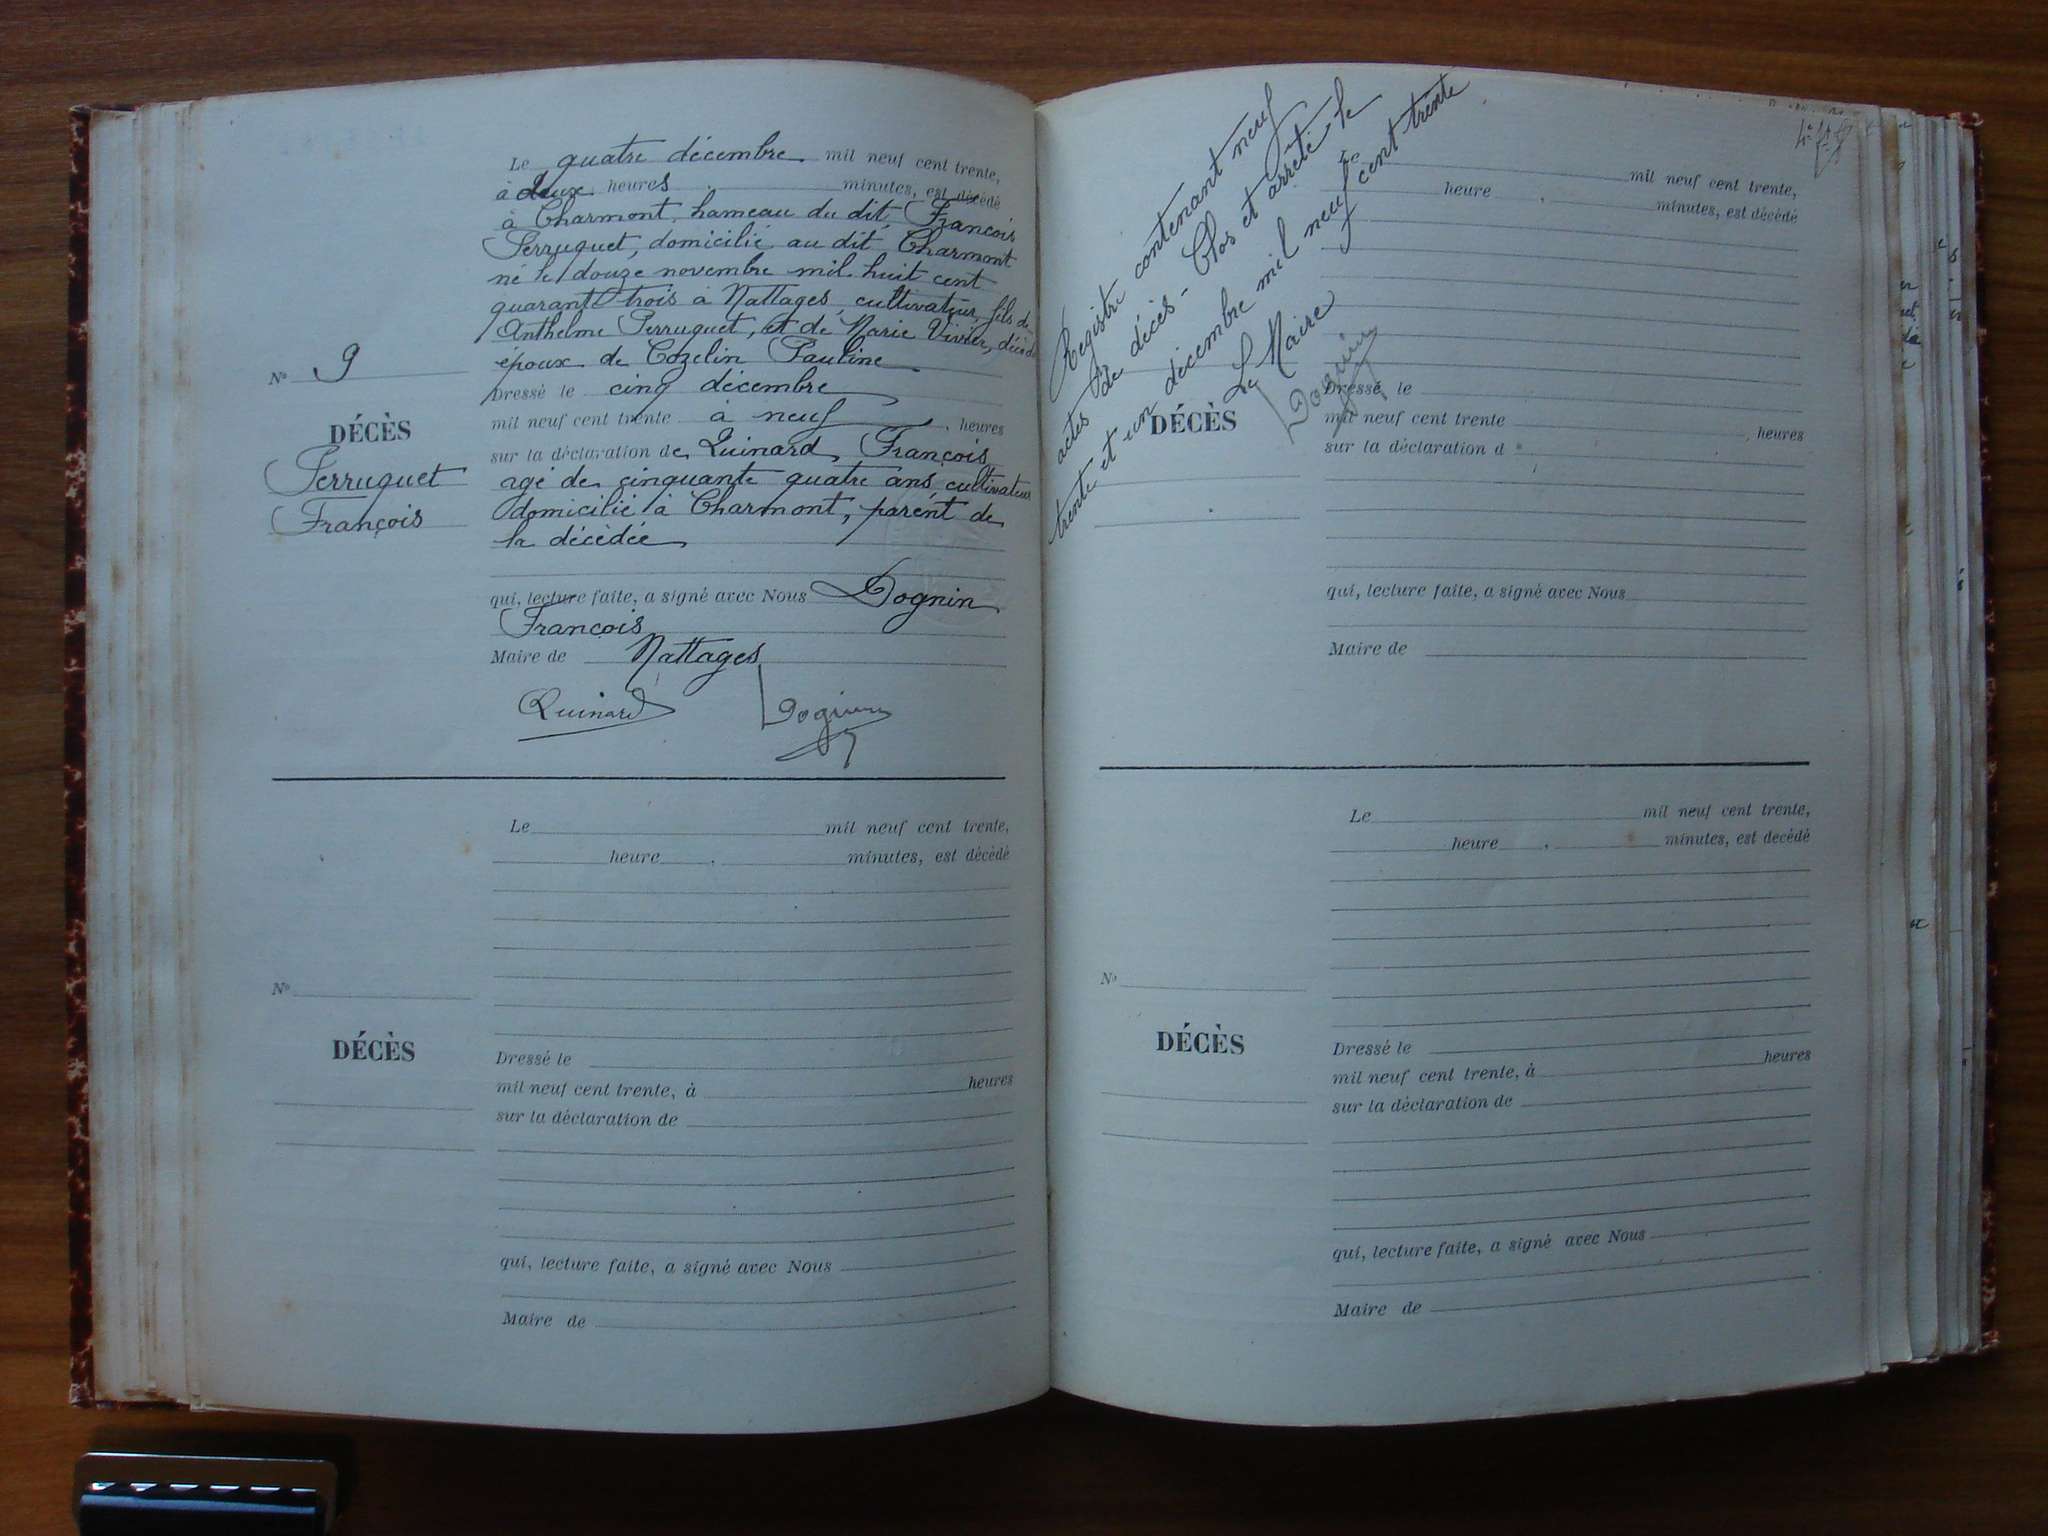 Le quatre décembre mil neuf cent trente,
à deux heures minutes, est décédé
à Charmont, hameau du dit, François
Perruquet, domicilié au dit Charmont
né le douze novembre mil huit cent
quarante trois à Nattages, cultivateur, fils de
Anthelme Perruquet, et de Marie Vivier, décédés
époux de Cozelin Pauline
Nº 9
Dressé le cinq décembre
mil neuf cent trente à neuf, heures
DÉCÈS
Perruquet
François
sur la déclaration de Quinard François
agé de cinquante quatre ans, cultivateur
domicilié à Charmont, parent de
la décédée
qui, lecture faite, a signé avec Nous Dognin
François
Maire de Nattages
Quinard Dognin
Le mil neuf cent trente,
heure , minutes, est décédé
Nº
DÉCÈS
Dressé le
mil neuf cent trente, à heures
sur la déclaration de
qui, lecture faite, a signé avec Nous
Maire de
Registre contenant neuf
actes de décès - Clos et arrêté le
trente et un décembre mil neuf cent trente
Le Maire
Dognin
Le mil neuf cent trente,
heure , minutes, est décédé
DÉCÈS
Dressé le
mil neuf cent trente , heures
sur la déclaration d
qui, lecture faite, a signé avec Nous
Maire de
Le mil neuf cent trente,
heure , minutes, est décédé
Nº
DÉCÈS
Dressé le
mil neuf cent trente, à heures
sur la déclaration de
qui, lecture faite, a signé avec Nous
Maire de